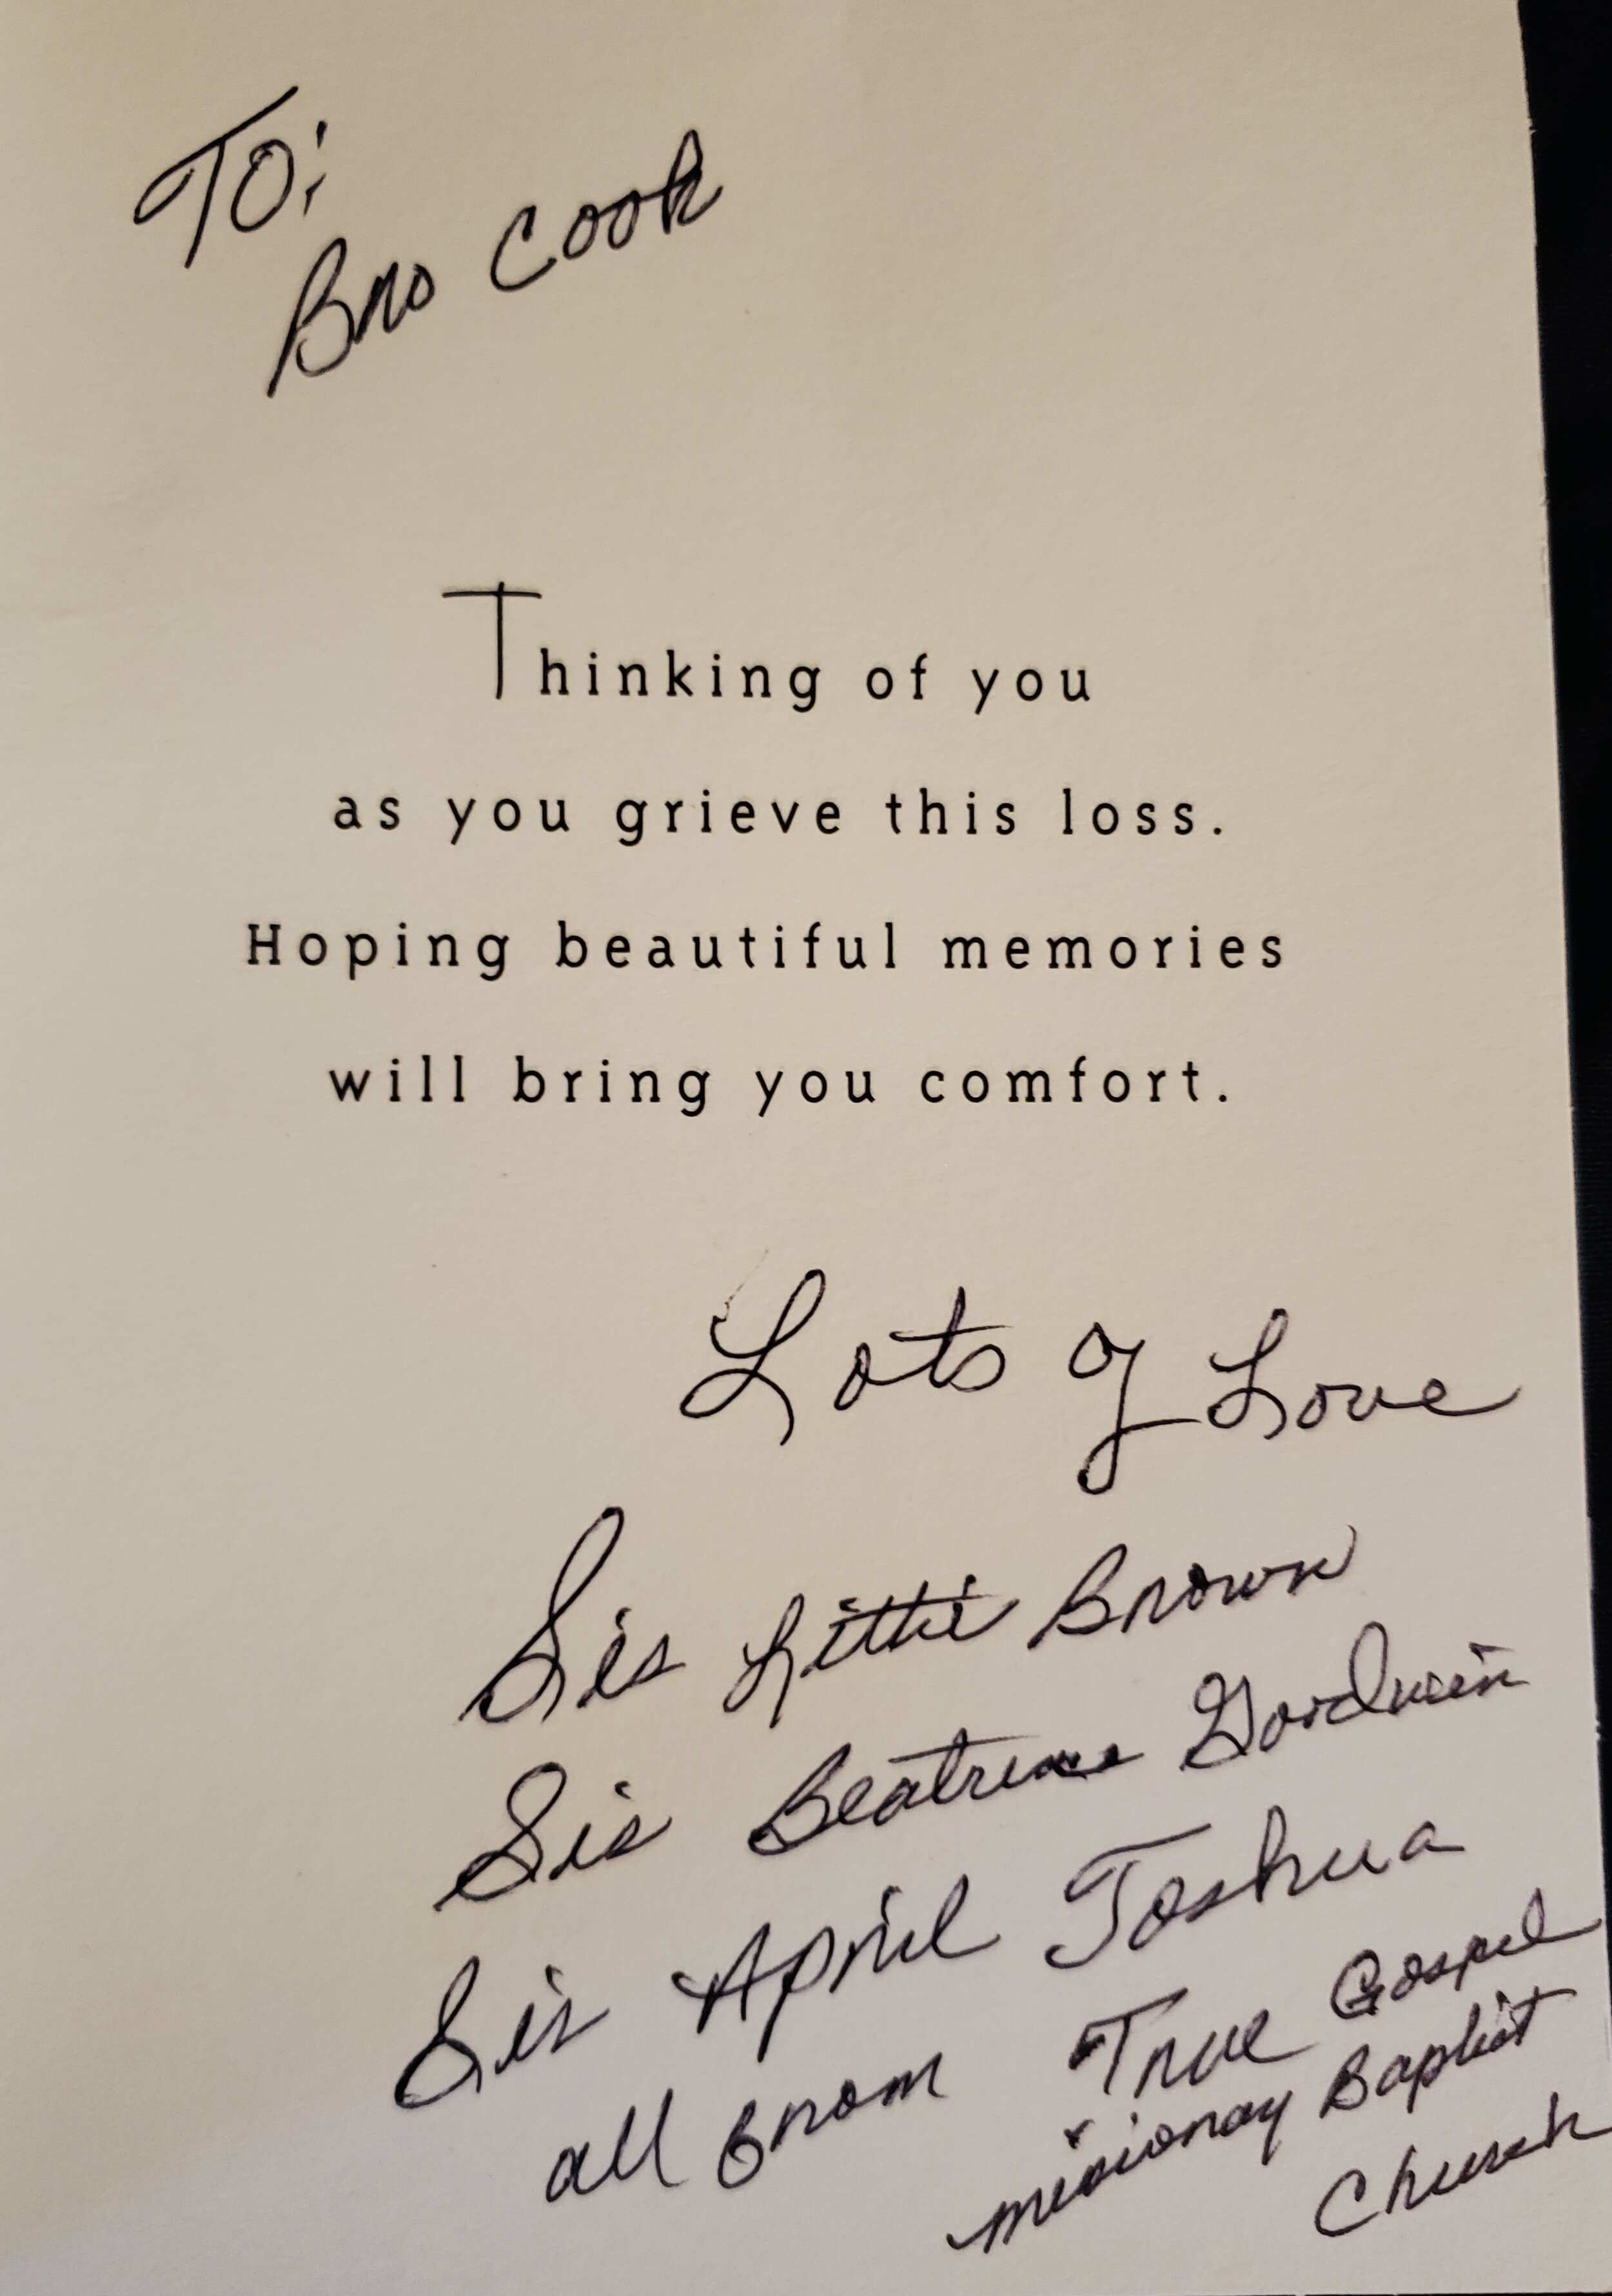 To:
Bro Cook
Thinking of you
as you grieve this loss.
Hoping beautiful memories
will bring you comfort.
Lots of Love
Sis Brown
Sis Goodwin
Sis April Joshua
all from True Gospel
missionay Baptist
Church